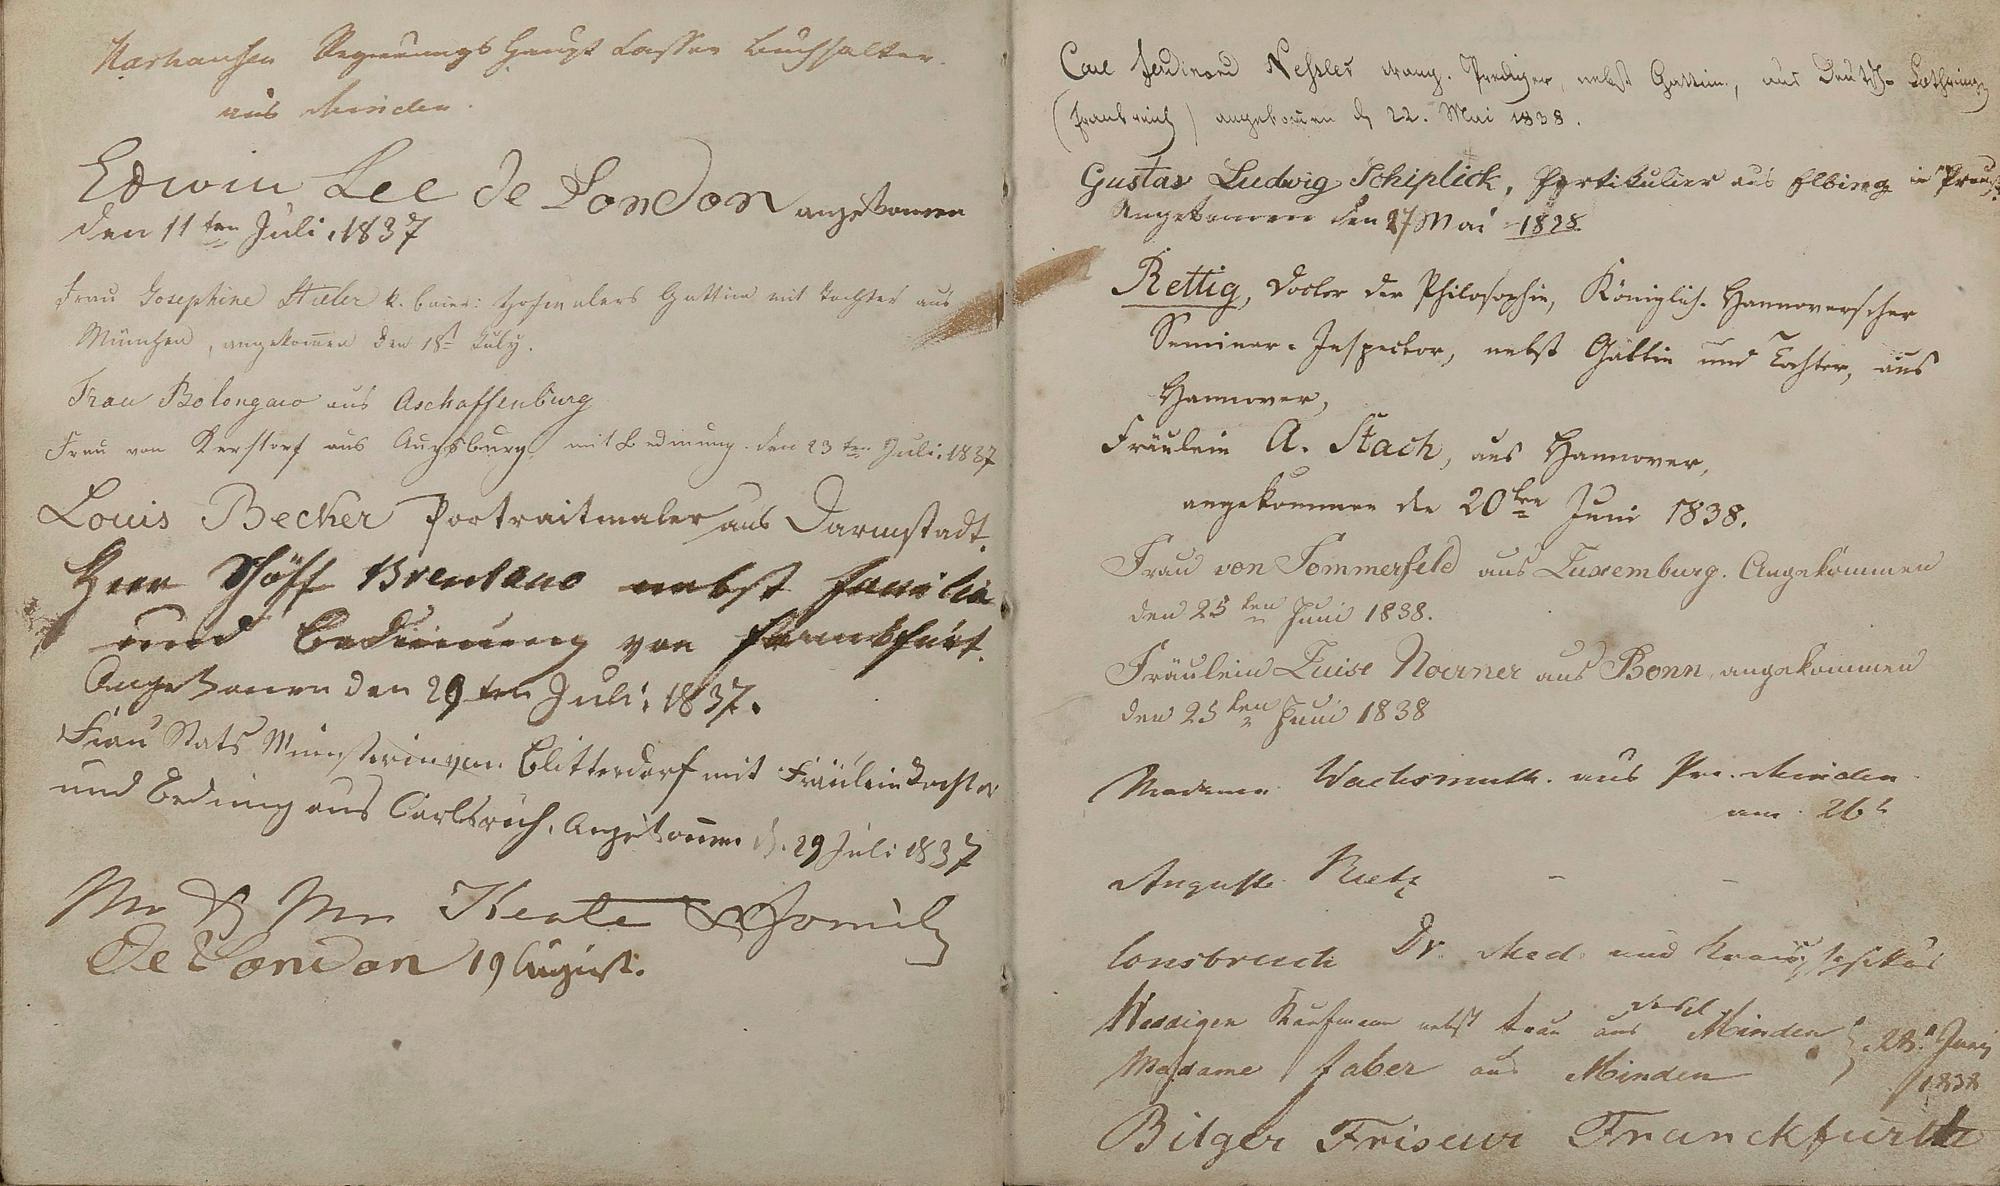 Harhausen Regierungs Haupt Cassen Buchhalter
aus Minden.
Edwin Lee de London angekomen
den 11ten Juli. 1837
Frau Josephine Stieler k. baier: Hofmalers Gattin mit Tochter aus
München, angekom̄en den 18t July.
Frau Bolongaro aus Aschaffenburg
Frau von Kerstorf aus Augsburg mit Bedinung. den 23ten Juli. 1837
Louis Becker Portraitmaler aus Darmstadt.
Herr Schöff Brentano nebst Familie
und Bedinung von Frankfurt.
Angekomen den 29ten Juli. 1837.
Frau Stats Ministerin von Blitterdorf mit Fräulein Tochter
und Bedinung aus Carlsruh. Angekom̄en d. 29 Juli 1837
Mr & Mrs & Family
De London 19 August.
Carl Ferdinand Neßler evang. Prediger, nebst Gattin, aus Deutsch-Lothringen
(Frankreich) angekom̄en d 22. Mai 1838.
Gustav Ludwig Schiplick, Partikulier aus Elbing in Preuß.
Angekomen den 27 Mai 1838.
Rettig, Doctor der Philosophie, Königlich-Hannoverscher
Seminar-Inspector, nebst Gattin und Tochter, aus
Hannover,
Fräulein A. Stach, aus Hannover,
angekommen den 20ten Juni 1838.
Frau von Sommerfeld aus Luxemburg. Angekommen
den 25ten Juni 1838.
Fräulein Luise Noerner aus Bonn, angekommen
den 25ten Juni 1838
Madame Wachsmuth. aus Pr. Minden
am 26t
Auguste Rietz - -
Consbruch Dr. Med. und Kreisphysikus
Weddigen Kaufmann nebst Frau aus Minden 28t Juni
Madame Faber aus Minden 1838
Bilger Friseur Franckfurth